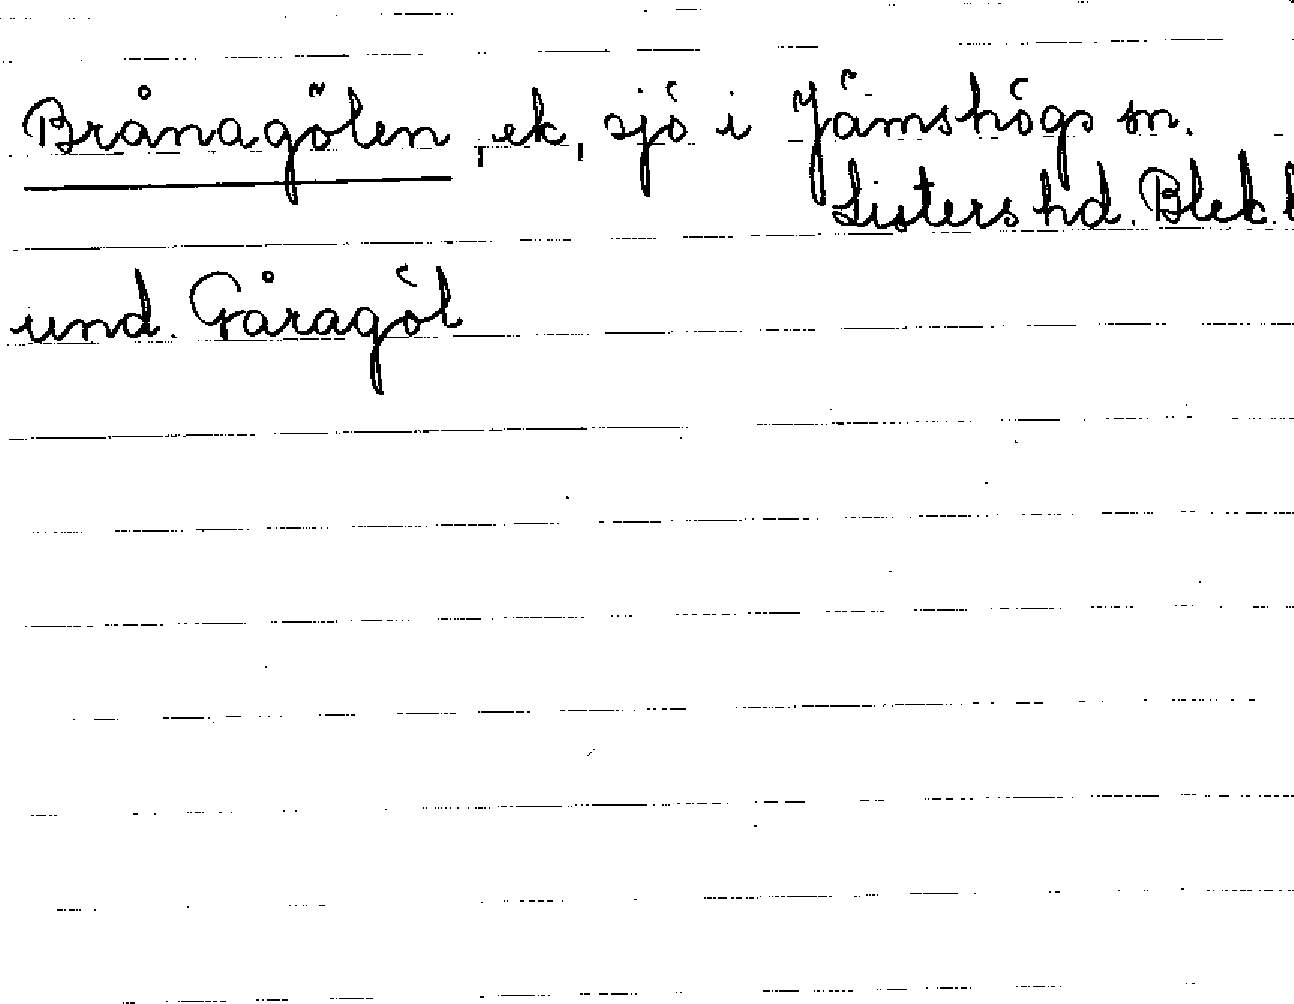 Brånagölen, ek, sjö i Jämshögs sn.
Listers hd. Blek. l
und. Gåragöl